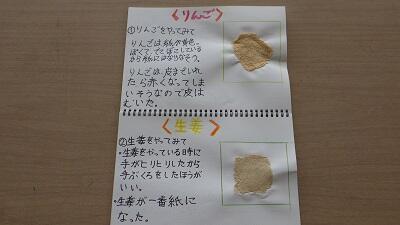 <りんご>
①りんごをやってみて
りんごは紙が黄色っ
ぽくて、でこぼこしている
から紙にはならなそう。
りんごは、皮までいれ
たら赤くなってしま
いそうなので皮は
むいた。
<生姜>
②生姜をやってみて
・生姜をやっている時に
手がヒリヒリしたから
手ぶくろをしたほうが
いい。
・生姜が一番紙に
なった。